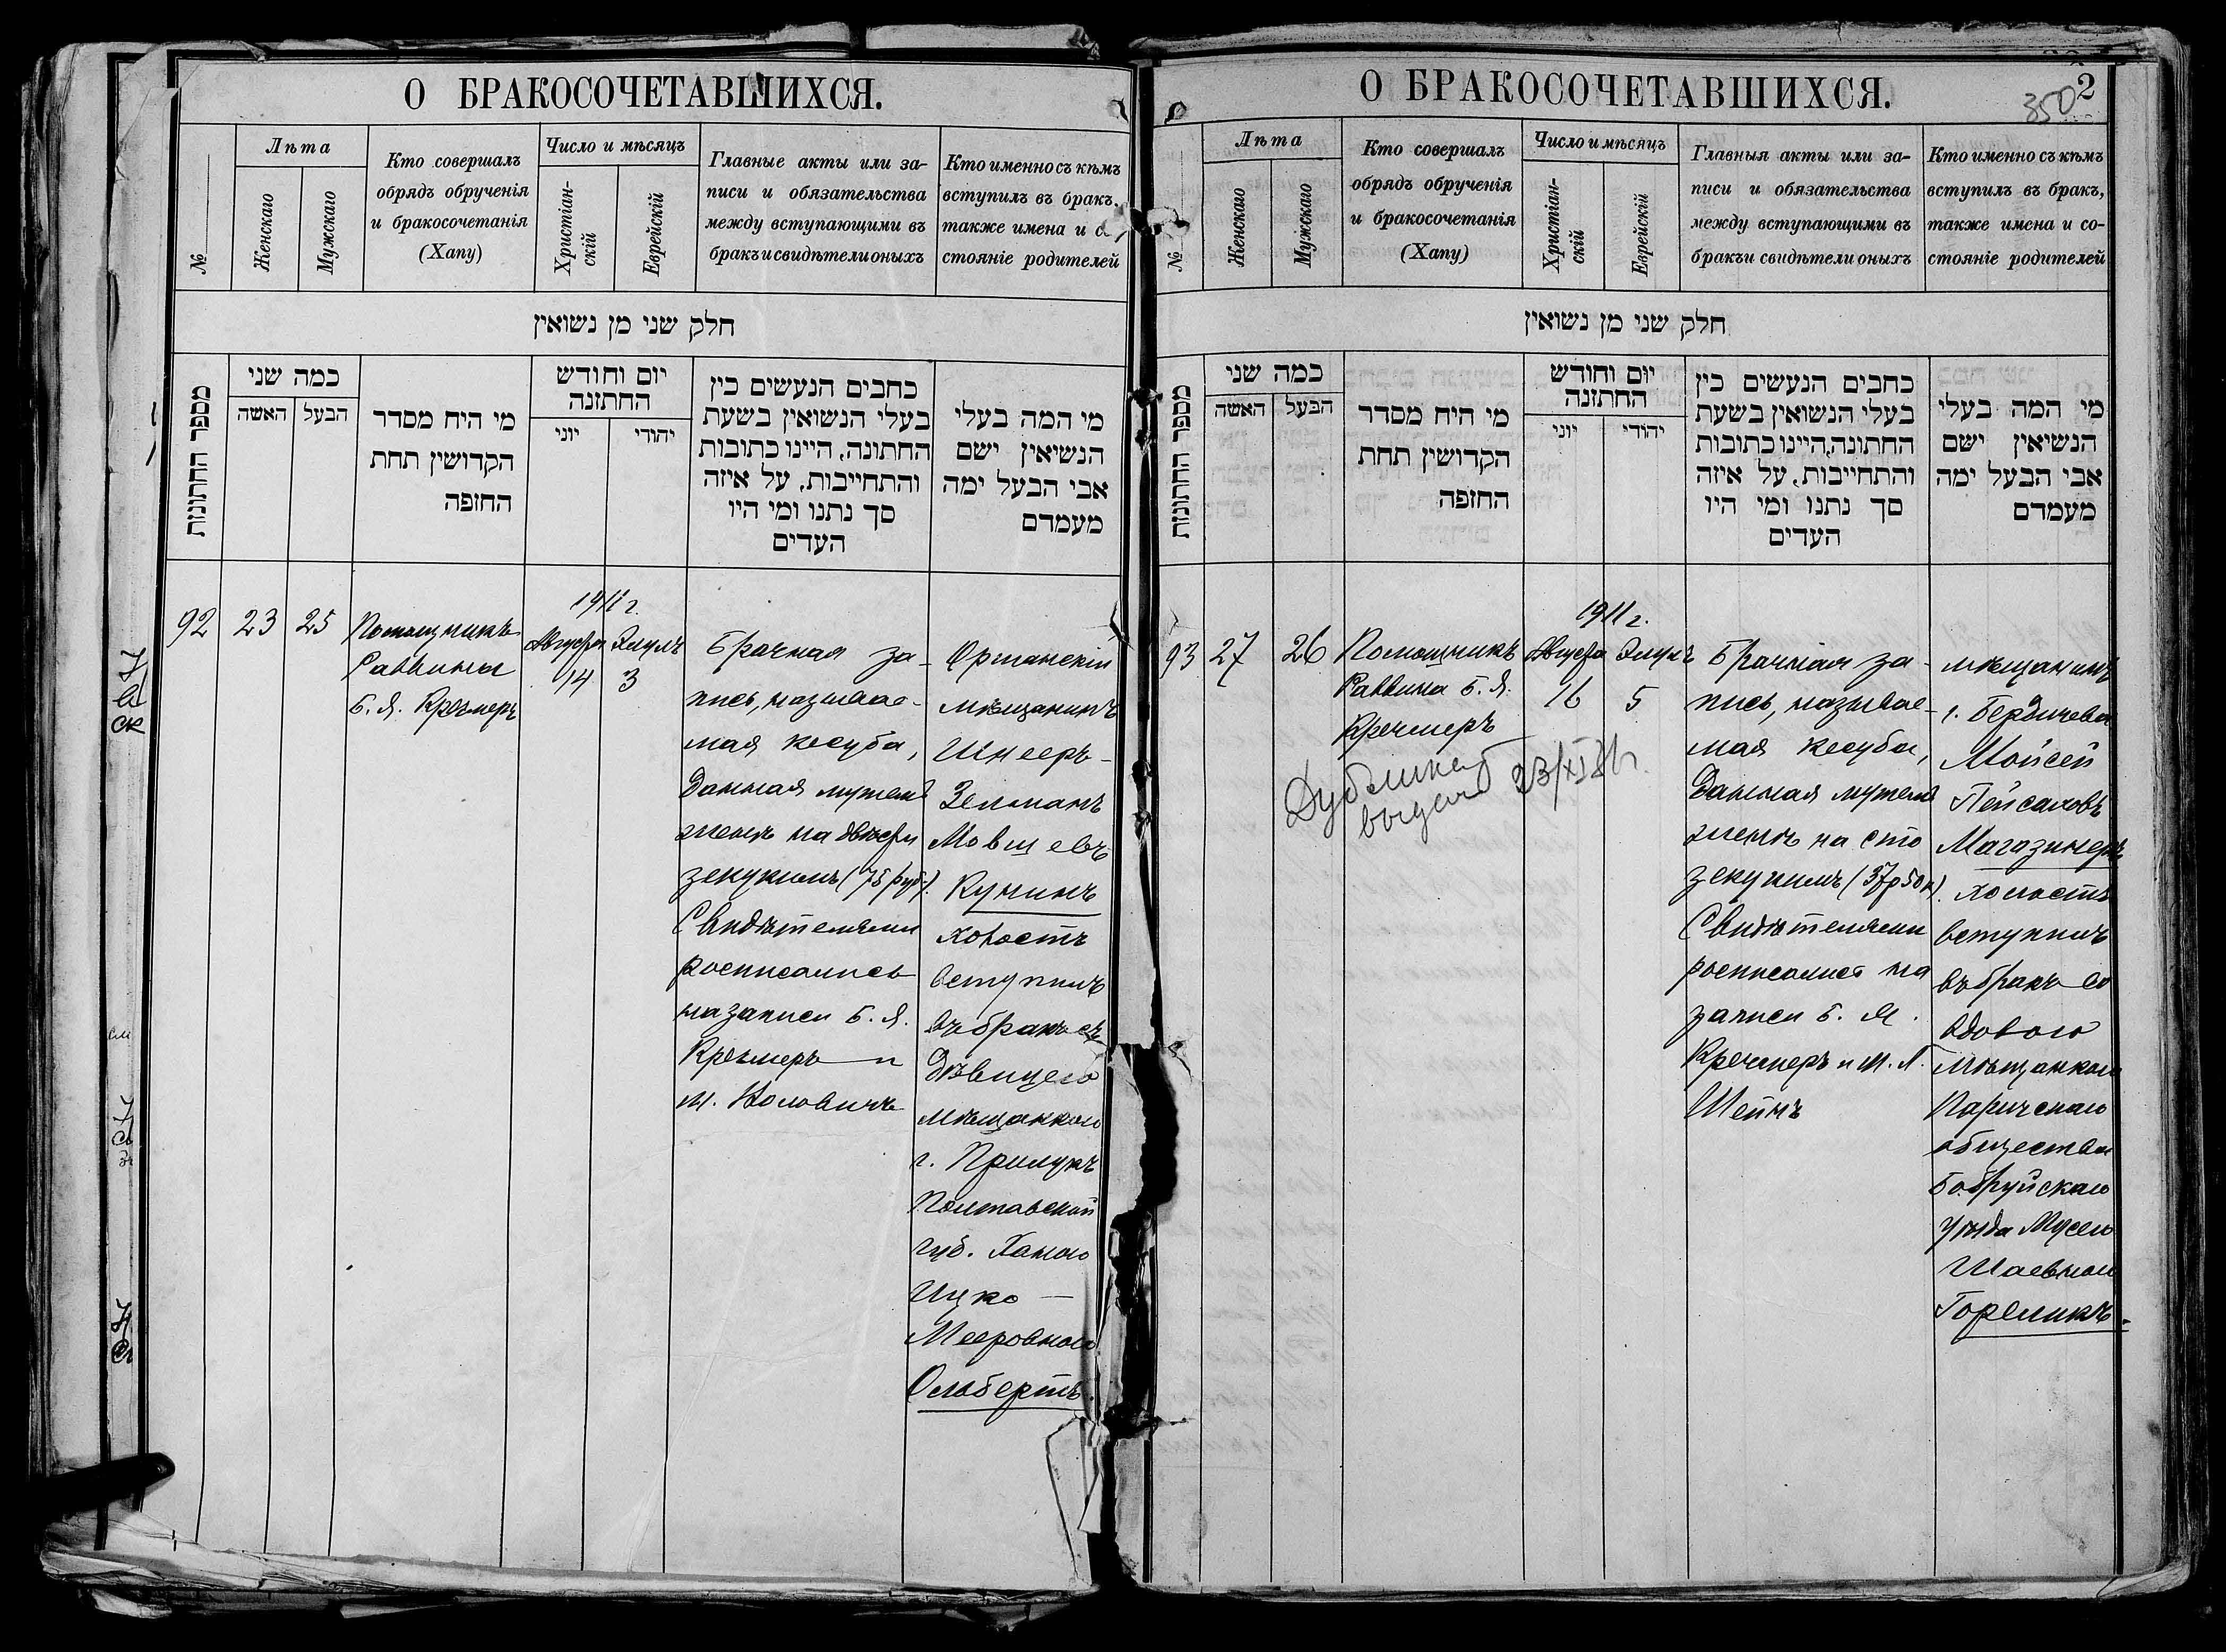 О БРАКОСОЧЕТАВШИХСЯ.
№
Лѣта
Женскаго
Мужскаго
Кто совершалъ
обрядъ обрученія
и бракосочетанія
(Хапу)
Число и мѣсяцъ
Христіан-
скій
Еврейскій
Главные акты или за-
писи и обязательства
между вступающими въ
бракъ и свидѣтели оныхъ
Кто именно съ кѣмъ
вступилъ въ бракъ,
также имена и с
стояніе родителей
חלק שני מן נשואין
מספר החתונות
כמה שני
האשה
הבעל
מי היח מסדר
הקדושין תחת
החופה
יום וחודש
החתונה
יוני
יהודי
כחבים הנעשים כין
בעלי הנשואין בשעת
החתונה, היינו כתובות
והתחייבות, על איזה
סך נתנו ומי היו
העדים
מי המה בעלי
הנשיאין ישם
אבי הבעל ימה
מעמדם
92
23
25
Помощникъ
Раввина
Б. Я. Кречмеръ
1911 г.
Августа
14
Элулъ
3
Брачная за-
пись, называе-
мая кесуба,
данная мужемъ
женѣ на двѣсти
зекукимъ (75 руб.).
Свидѣтелями
росписались
на записи Б. Я.
Кречмеръ и
М.
Оршанскій
мѣщанинъ
Шнееръ-
Зелманъ
Мовшевъ
Кунинъ
холостъ
вступилъ
въ бракъ съ
дѣвицею
мѣщанкою
г. Прилукъ
Полтавской
губ. Ханою
Ицко-
Мееровною
Ольбертъ.
О БРАКОСОЧЕТАВШИХСЯ.
2
350
№
Лѣта
Женскаго
Мужскаго
Кто совершалъ
обрядъ обрученія
и бракосочетанія
(Хапу)
Число и мѣсяцъ
Христіан-
скій
Еврейскій
Главныя акты или за-
писи и обязательства
между вступающими въ
бракъ и свидѣтели оныхъ
Кто именно съ кѣмъ
вступилъ въ бракъ,
также имена и со-
стояніе родителей
חלק שני מן נשואין
מספר החתונות
כמה שני
האשה
הבעל
מי היח מסדר
הקדושין תחת
החופה
יום וחודש
החתונה
יוני
יהודי
כחבים הנעשים כין
בעלי הנשואין בשעת
החתונה, היינו כתובות
והתחייבות, על איזה
סך נתנו ומי היו
העדים
מי המה בעלי
הנשיאין ישם
אבי הבעל ימה
מעמדם
93
27
26
Помощникъ
Раввина Б. Я.
Кречмеръ
Дубликат
выдан
1911 г.
Августа
16
Элулъ
5
Брачная за-
пись, называе-
мая кесуба,
данная мужемъ
женѣ на сто
зекукимъ (37 р 50 к).
Свидѣтелями
росписались на
записи Б. Я.
Кречмеръ и М. Л.
Шейнъ
мѣщанинъ
г. Бердичева
Мойсей
Пейсаховъ
Магазинеръ
холостъ
вступилъ
въ бракъ со
вдовою
мѣщанкою
Паричскаго
общества
Бобруйскаго
уѣзда Мусею
Шаевною
Гореликъ.